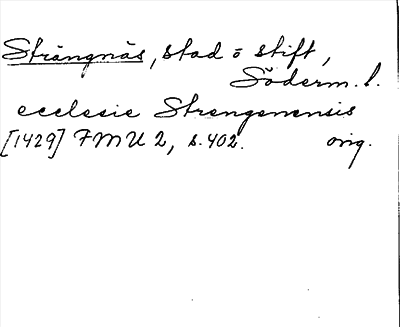 Strängnäs, stad o stift,
Söderm. l.
ecclesie Strengenensis
[1429] FMU 2, s. 402. orig.